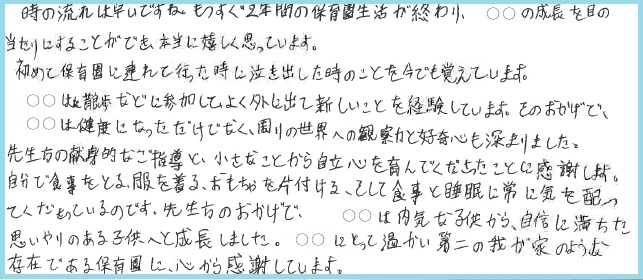 時の流れは早いですね。もうすぐ2年間の保育園生活が終わり、 ○○の成長を目の
当たりにすることができ、本当に嬉しく思っています。
初めて保育園に連れて行った時に泣き出した時のことを今でも覚えています。
○○は散歩などに参加して、よく外に出て新しいことを経験しています。そのおかげで、
○○は健康になっただけでなく、周りの世界への観察力と好奇心も深まりました。
先生方の献身的なご指導と、小さなことから自立心を育んでくださったことに感謝します。
自分で食事をとる、服を着る、おもちゃを片付ける、そして食事と睡眠に常に気を配っ
てくださっているのです。先生方のおかげで、 ○○は内気な子供から、自信に満ちた
思いやりのある子供へと成長しました。○○にとって温かい第二の我が家のような
存在である保育園に、心から感謝しています。